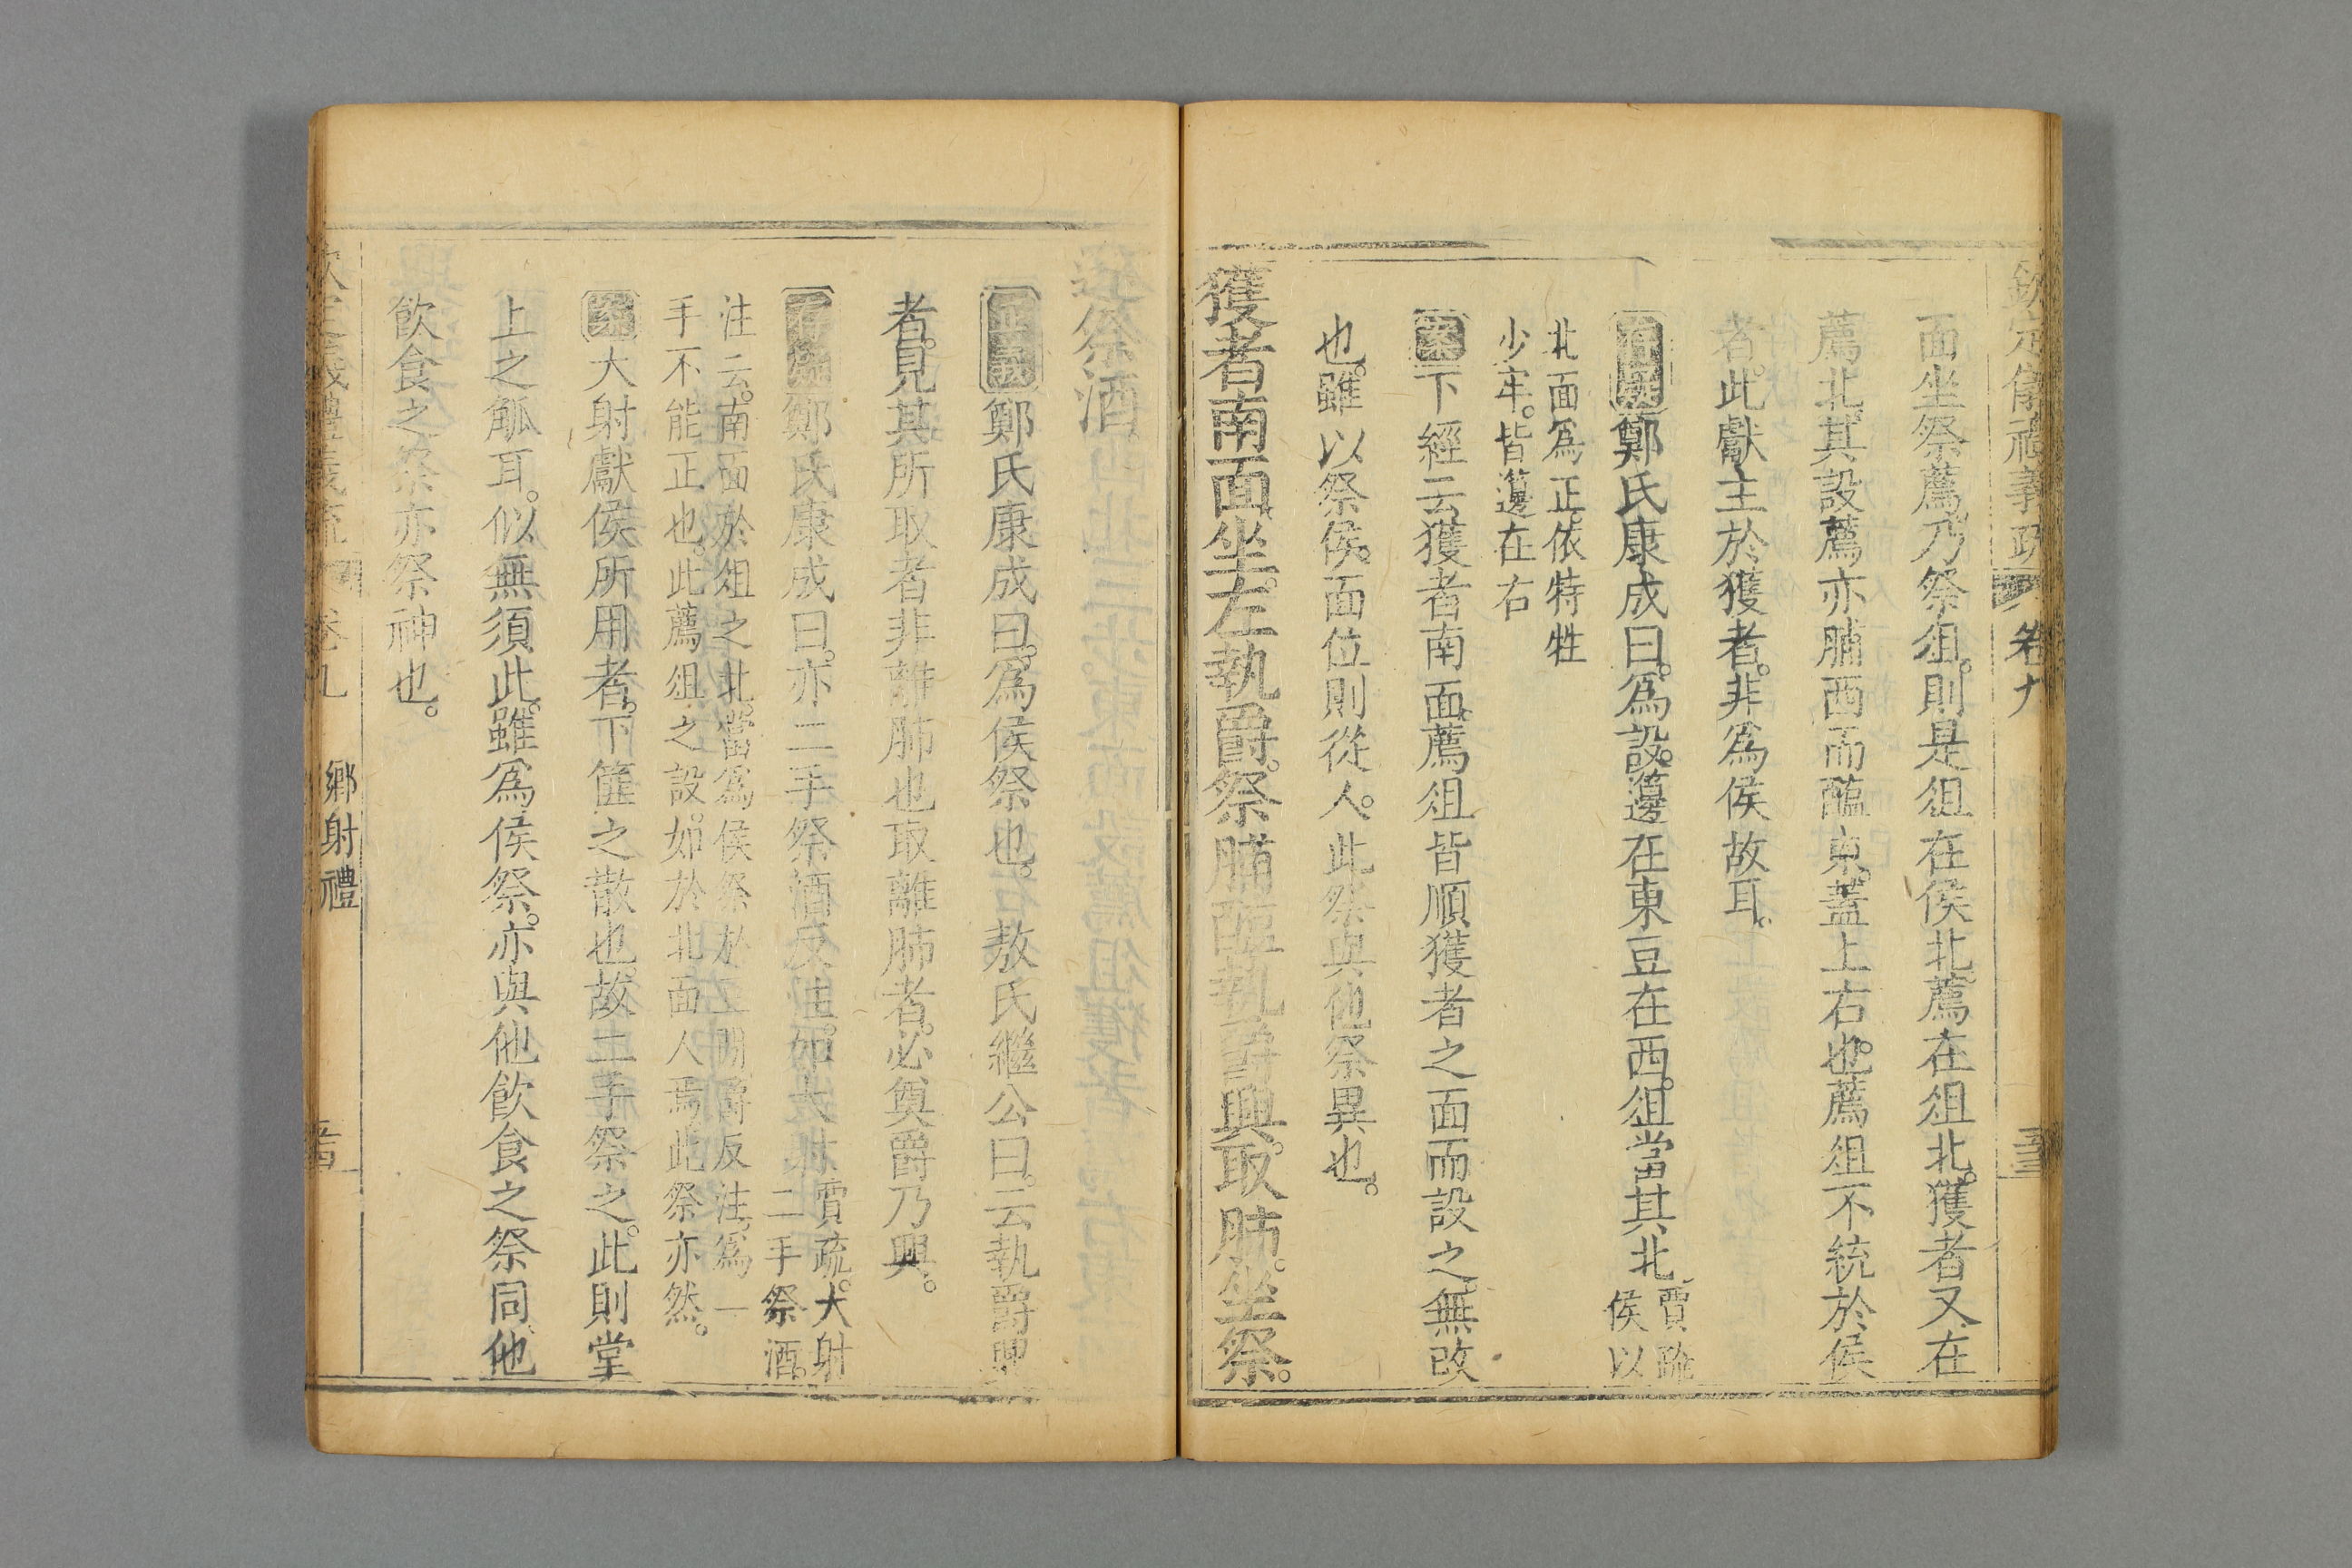 欽定儀禮義疏 卷九
面坐祭薦乃祭俎。則是俎在侯北。薦在俎北。獲者又在
薦北。其設薦亦脯西而醢東。蓋上右也。薦俎不統於侯
者。此獻主於獲者。非爲侯故耳。
存疑鄭氏康成曰。爲設。籩在東豆在西。俎當其北。賈疏
侯以
北面爲正。依特牲
少牢。皆籩在右
案下經云獲者南面。薦俎皆順獲者之面而設之。無改
也。雖以祭侯。面位則從人。此祭與他祭異也。
獲者南面坐。左執爵。祭脯醢。執爵興。取肺。坐祭。
遂祭酒
正義鄭氏康成曰。爲侯祭也。敖氏繼公曰。云執爵興
者。見其所取者非離肺也取離肺者。必奠爵乃興。
存疑鄭氏康成曰。亦二手祭酒反注。如大射賈疏。大射
二手祭酒。
注云。南面於俎之北。當爲侯祭於豆間爵反注。爲一
手不能正也。此薦俎之設。如於北面人焉此祭亦然。
案大射獻侯所用者。下篚之散也。故二手祭之。此則堂
上之觚耳。似無須此。雖爲侯祭。亦與他飲食之祭同他
飲食之祭亦祭神也。
卷九 鄉射禮